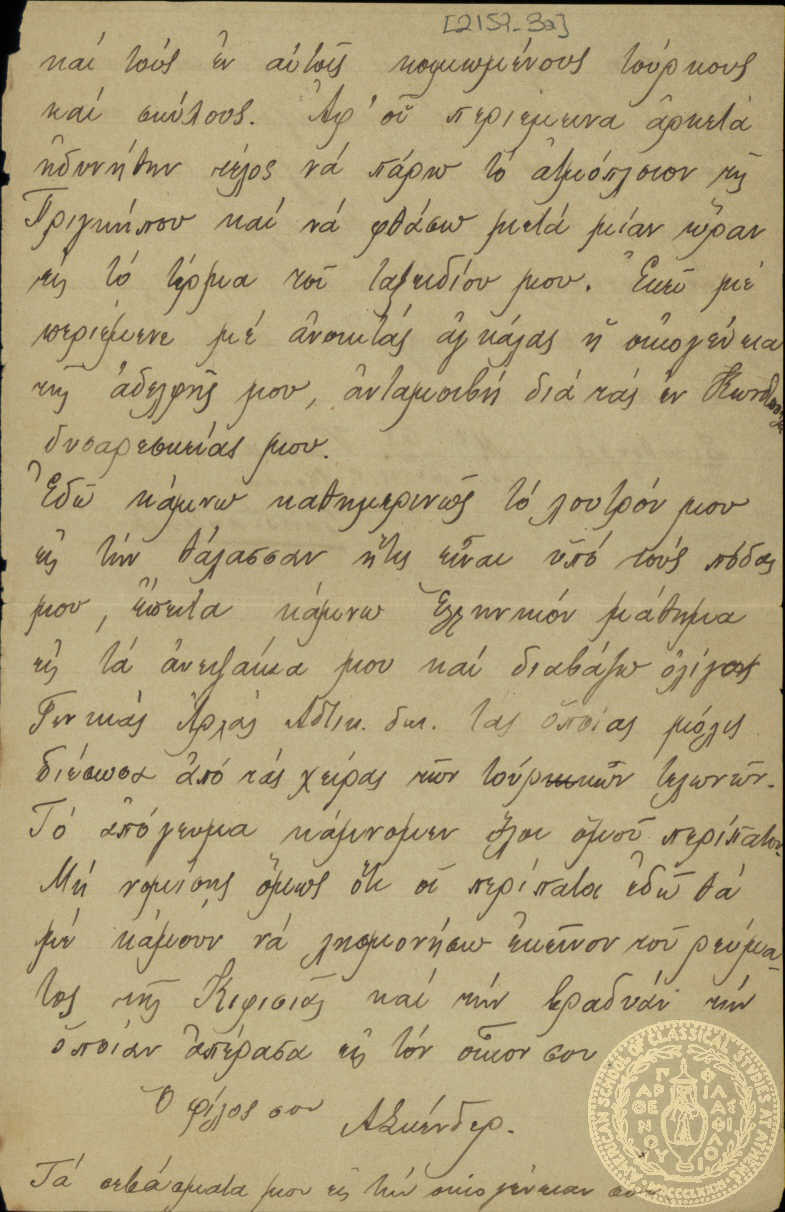 [2157-3a]
καί τούς ἐν αὐτοῖς κοιμωμένους τούρκους
καί σκύλους. Ἀφ' οὗ περιέμεινα ἀρκετά
ἠδυνήθην τέλος νά πάρω τό ἀτμόπλοιον τῆς
Πριγκήπου καί νά φθάσω μετά μίαν ὥραν
εἰς τό τέρμα τοῦ ταξειδίου μου. Ἐκεῖ μέ
περιέμενε μέ ἀνοικτάς ἀγκάλας ἡ οἰκογένεια
τῆς ἀδελφῆς μου, ἀνταμοιβή διά τάς ἐν
δυσαρεσκείας μου.
Ἐδῶ κάμνω καθημερινῶς τό λουτρόν μου
εἰς τήν θάλασσαν ἥτις εἶναι ὑπό τούς πόδας
μου, ἔπειτα κάμνω Ἑλληνικόν μάθημα
εἰς τά ἀνεψάκια μου καί διαβάζω ὀλίγας
Γενικάς Ἀρχάς Ἀστικ. δικ. τάς ὁποίας μόλις
διέσωσα ἀπό τάς χεῖρας τῶν τούρκικῶν τελωνῶν.
Τό ἀπόγευμα κάμνομεν ὅλοι ὁμοῦ περίπατον.
Μή νομίσῃς ὅμως ὅτι οἱ περίπατοι ἐδῶ θά
μέ κάμουν νά λησμονήσω ἐκεῖνον τοῦ ρεύμα-
τος τῆς Κηφισιᾶς καί τήν βραδυάν τήν
ὁποίαν ἀπέρασα εἰς τόν οἶκον σου
Ὁ φίλος σου
Τά σεβάσματά μου εἰς τήν οἰκογένειαν σου
AMERICAN SCHOOL OF CLASSICAL STUDIES AT ATHENS
ΠΑΡΘΕΝΟΥ ΦΙΛΑΣ ΦΙΛΟΙ
MDCCCLXXXI